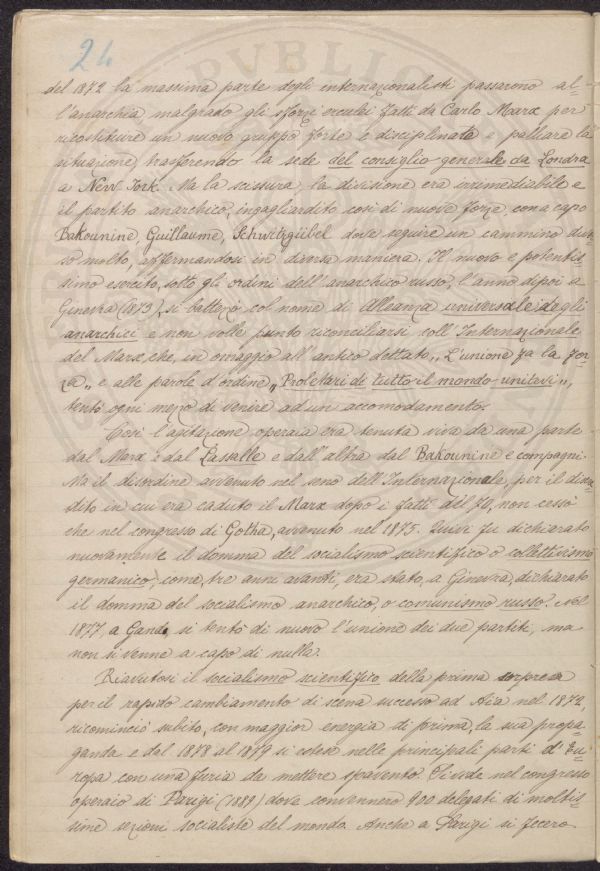 24
del 1872 la massima parte degli internazionalisti passarono al-
l'anarchia malgrado gli sforzi erculei fatti da Carlo Marx per
ricostituire un nuovo gruppo forte e disciplinato e palliare la
situazione, trasferendo la sede del consiglio generale da Londra
a New York. Ma la scissura, la divisione era irrimediabile e
il partito anarchico, ingagliardito così di nuove forze, con a capo
Bakounine, Guillaume, Schwitzgübel dové seguire un cammino diver-
so molto, affermandosi in diversa maniera. Il nuovo e potentis-
simo esercito, sotto gli ordini dell'anarchico russo, l'anno dipoi a
Ginevra (1873), si battezzò col nome di Alleanza universale degli
anarchici e non volle punto riconciliarsi coll'Internazionale
del Marx, che, in omaggio all'antico dettato "L'unione fa la for-
za" e alle parole d'ordine "Proletari di tutto il mondo unitevi",
tentò ogni mezzo di venire ad un accomodamento.
Così l'agitazione operaia era tenuta viva da una parte
dal Marx e dal Lassalle e dall'altra dal Bakounine e compagni.
Ma il disordine avvenuto nel seno dell'Internazionale, per il discre-
dito in cui era caduto il Marx dopo i fatti del 70, non cessò
che nel congresso di Gotha, avvenuto nel 1875. Quivi fu dichiarato
nuovamente il domma del socialismo scientifico o collettivismo
germanico, come, tre anni avanti, era stato, a Ginevra, dichiarato
il domma del socialismo anarchico, o comunismo russo. Nel
1877, a Gand, si tentò di nuovo l'unione dei due partiti, ma
non si venne a capo di nulla.
Riavutosi il socialismo scientifico della prima sorpresa
per il rapido cambiamento di scena successo ad Aia nel 1872,
ricominciò subito, con maggior energia di prima, la sua propa-
ganda e dal 1878 al 1879 si estese nelle principali parti d'Eu-
ropa con una furia da mettere spavento. Si vide nel congresso
operaio di Parigi (1889) dove convennero 900 delegati di moltis-
sime sezioni socialiste del mondo. Anche a Parigi si fecero